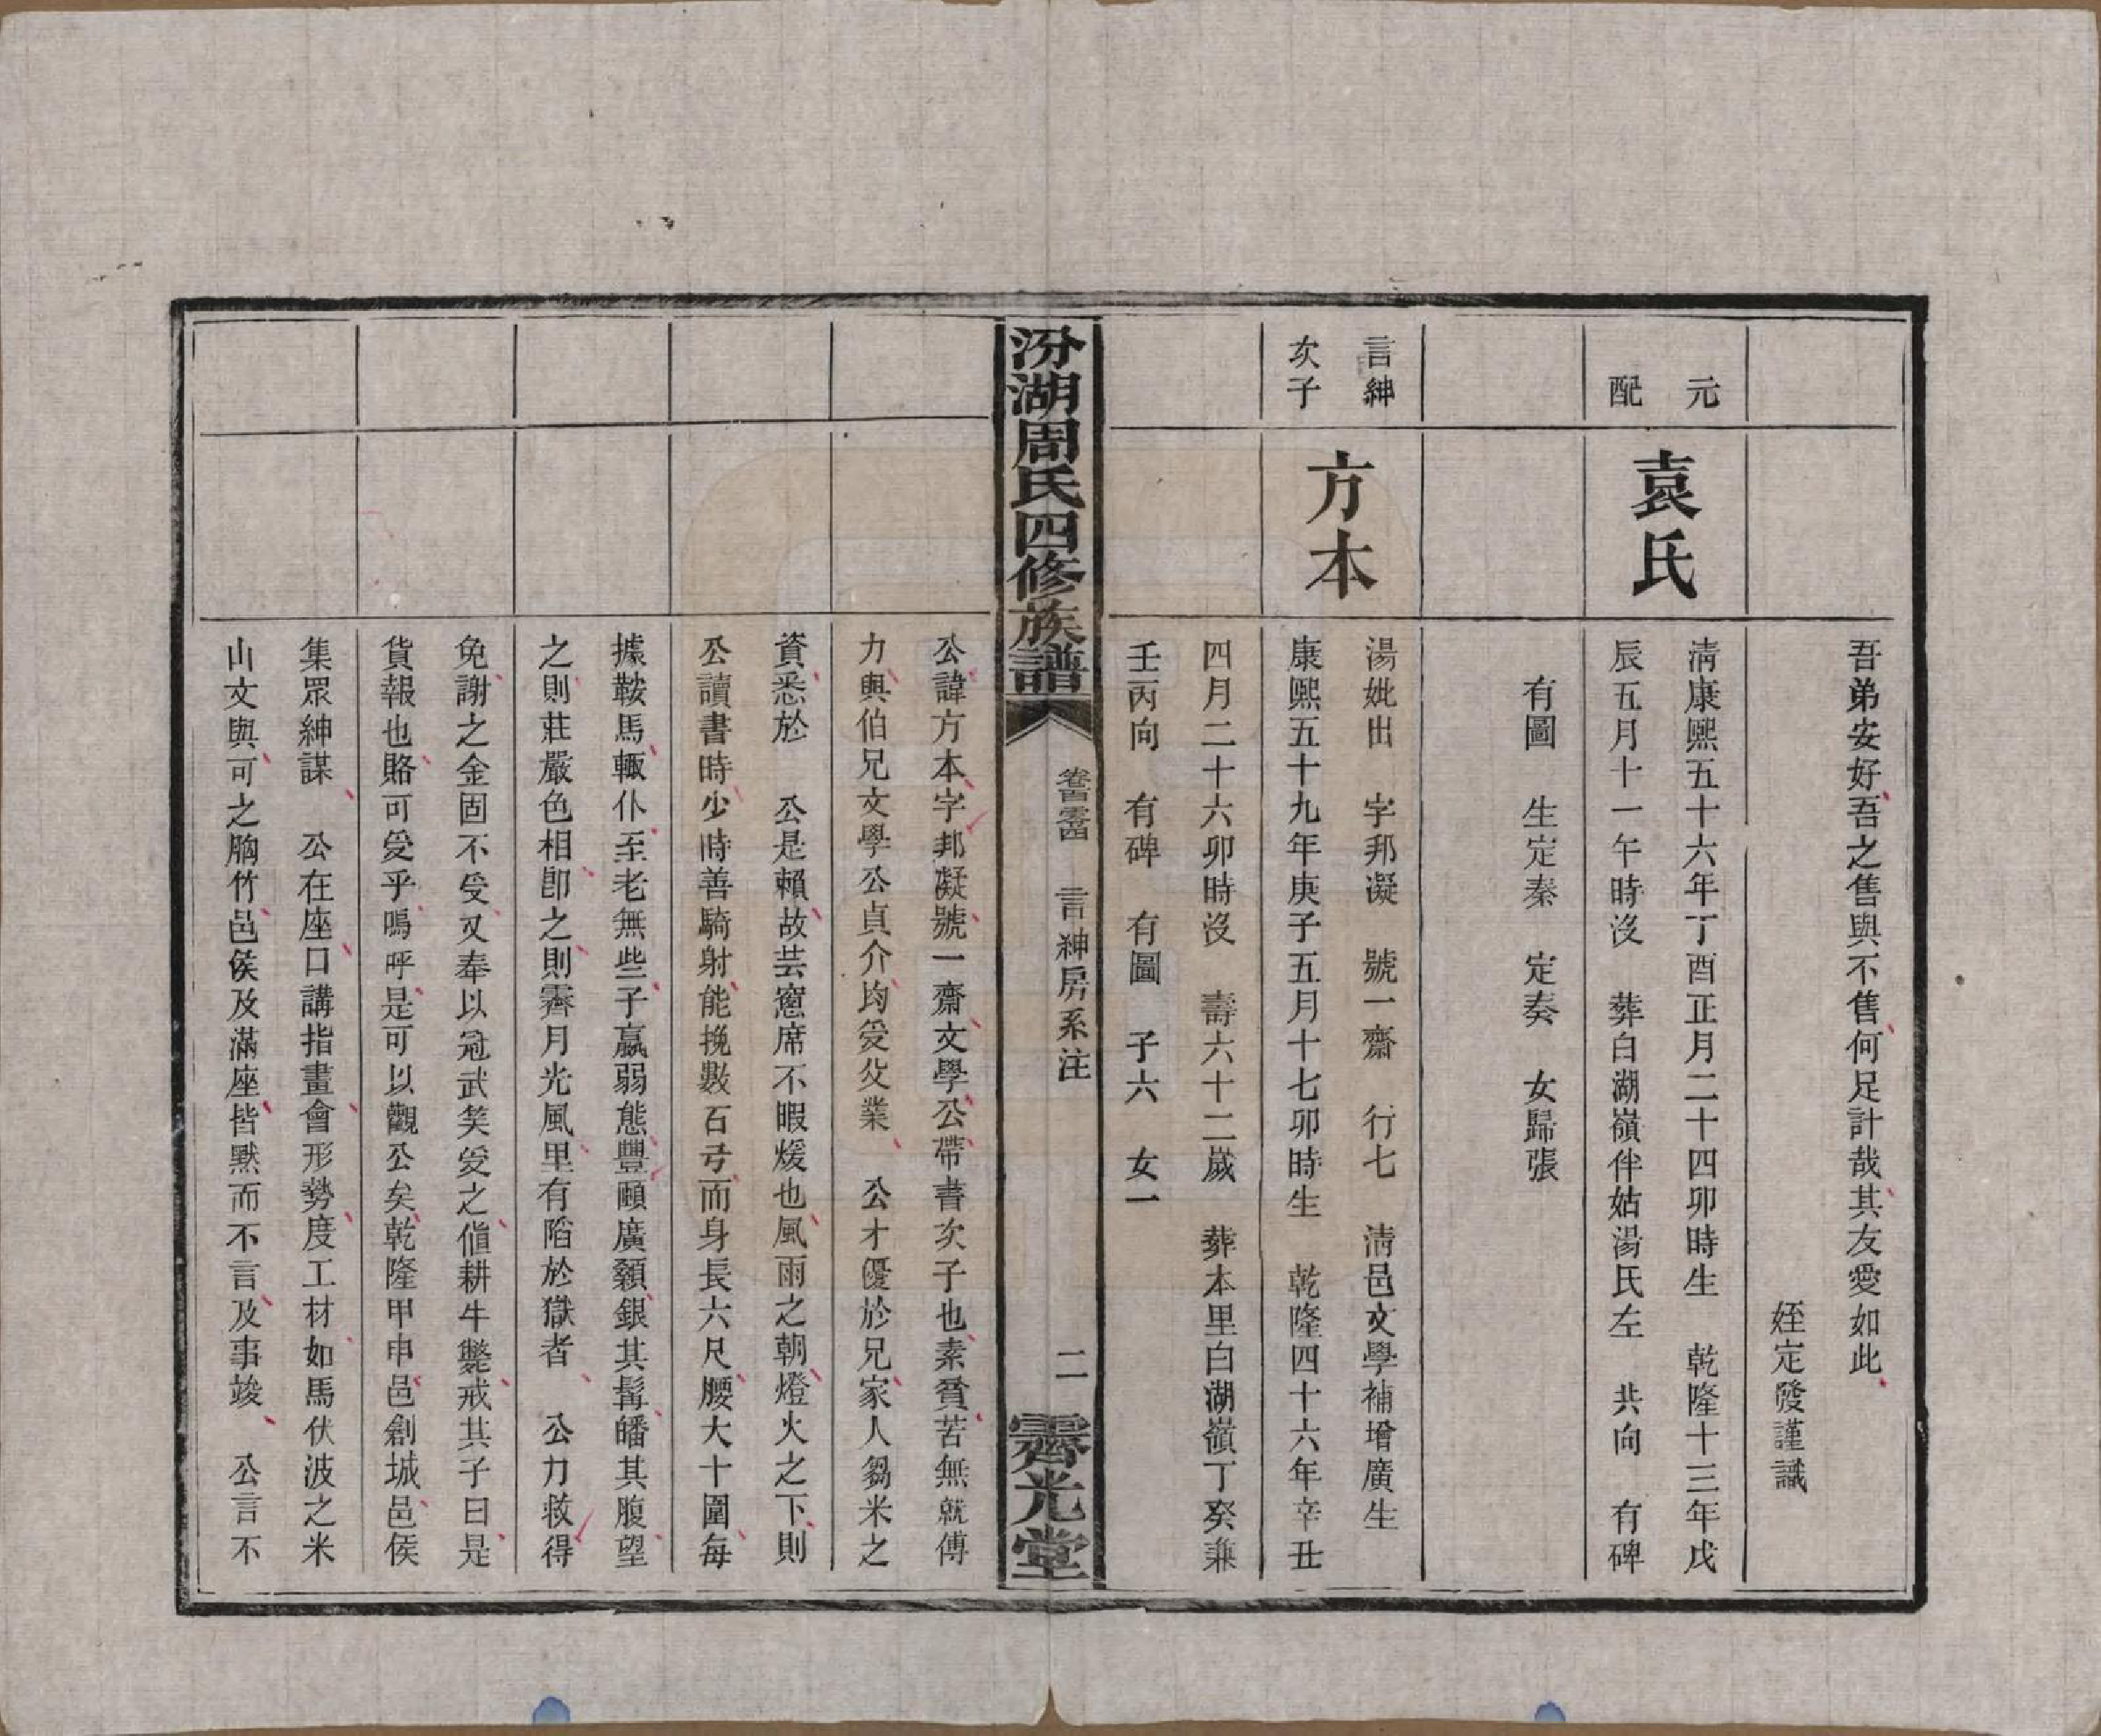 吾弟安好吾之售與不售何足計哉其友愛如此
姪定發謹識
元
配
袁氏
清康熙五十六年丁酉正月二十四卯時生　乾隆十三年戊
辰五月十一午時沒　葬白湖嶺伴姑湯氏左　共向　有碑
有圖　生定秦　定奏　女歸張
言紳
次子
方本
湯妣出　字邦凝　號一齋　行七　清邑文學補增廣生
康熙五十九年庚子五月十七卯時生　乾隆四十六年辛丑
四月二十六卯時沒　壽六十二歲　葬本里白湖嶺丁癸兼
壬丙向　有碑　有圖　子六　女一
汾湖周氏四修族譜
卷　言紳房系注
二
霽光堂
公諱方本字邦凝號一齋文學公帶書次子也素貧苦無就傅
力與伯兄文學公貞介均受父業　公才優於兄家人芻米之
資悉於　公是賴故芸窻席不暇煖也風雨之朝燈火之下則
公讀書時少時善騎射能挽數石弓而身長六尺腰大十圍每
據鞍馬輒仆至老無些子嬴弱態豐頤廣顙銀其髯皤其腹望
之則莊嚴色相卽之則霽月光風里有陷於獄者　公力救得
免謝之金固不受又奉以冠武笑受之值耕牛斃戒其子曰是
貨報也賂可受乎嗚呼是可以觀公矣乾隆甲申邑創城邑侯
集眾紳謀　公在座口講指畫會形勢度工材如馬伏波之米
山文與可之胸竹邑侯及滿座皆默而不言及事竣　公言不